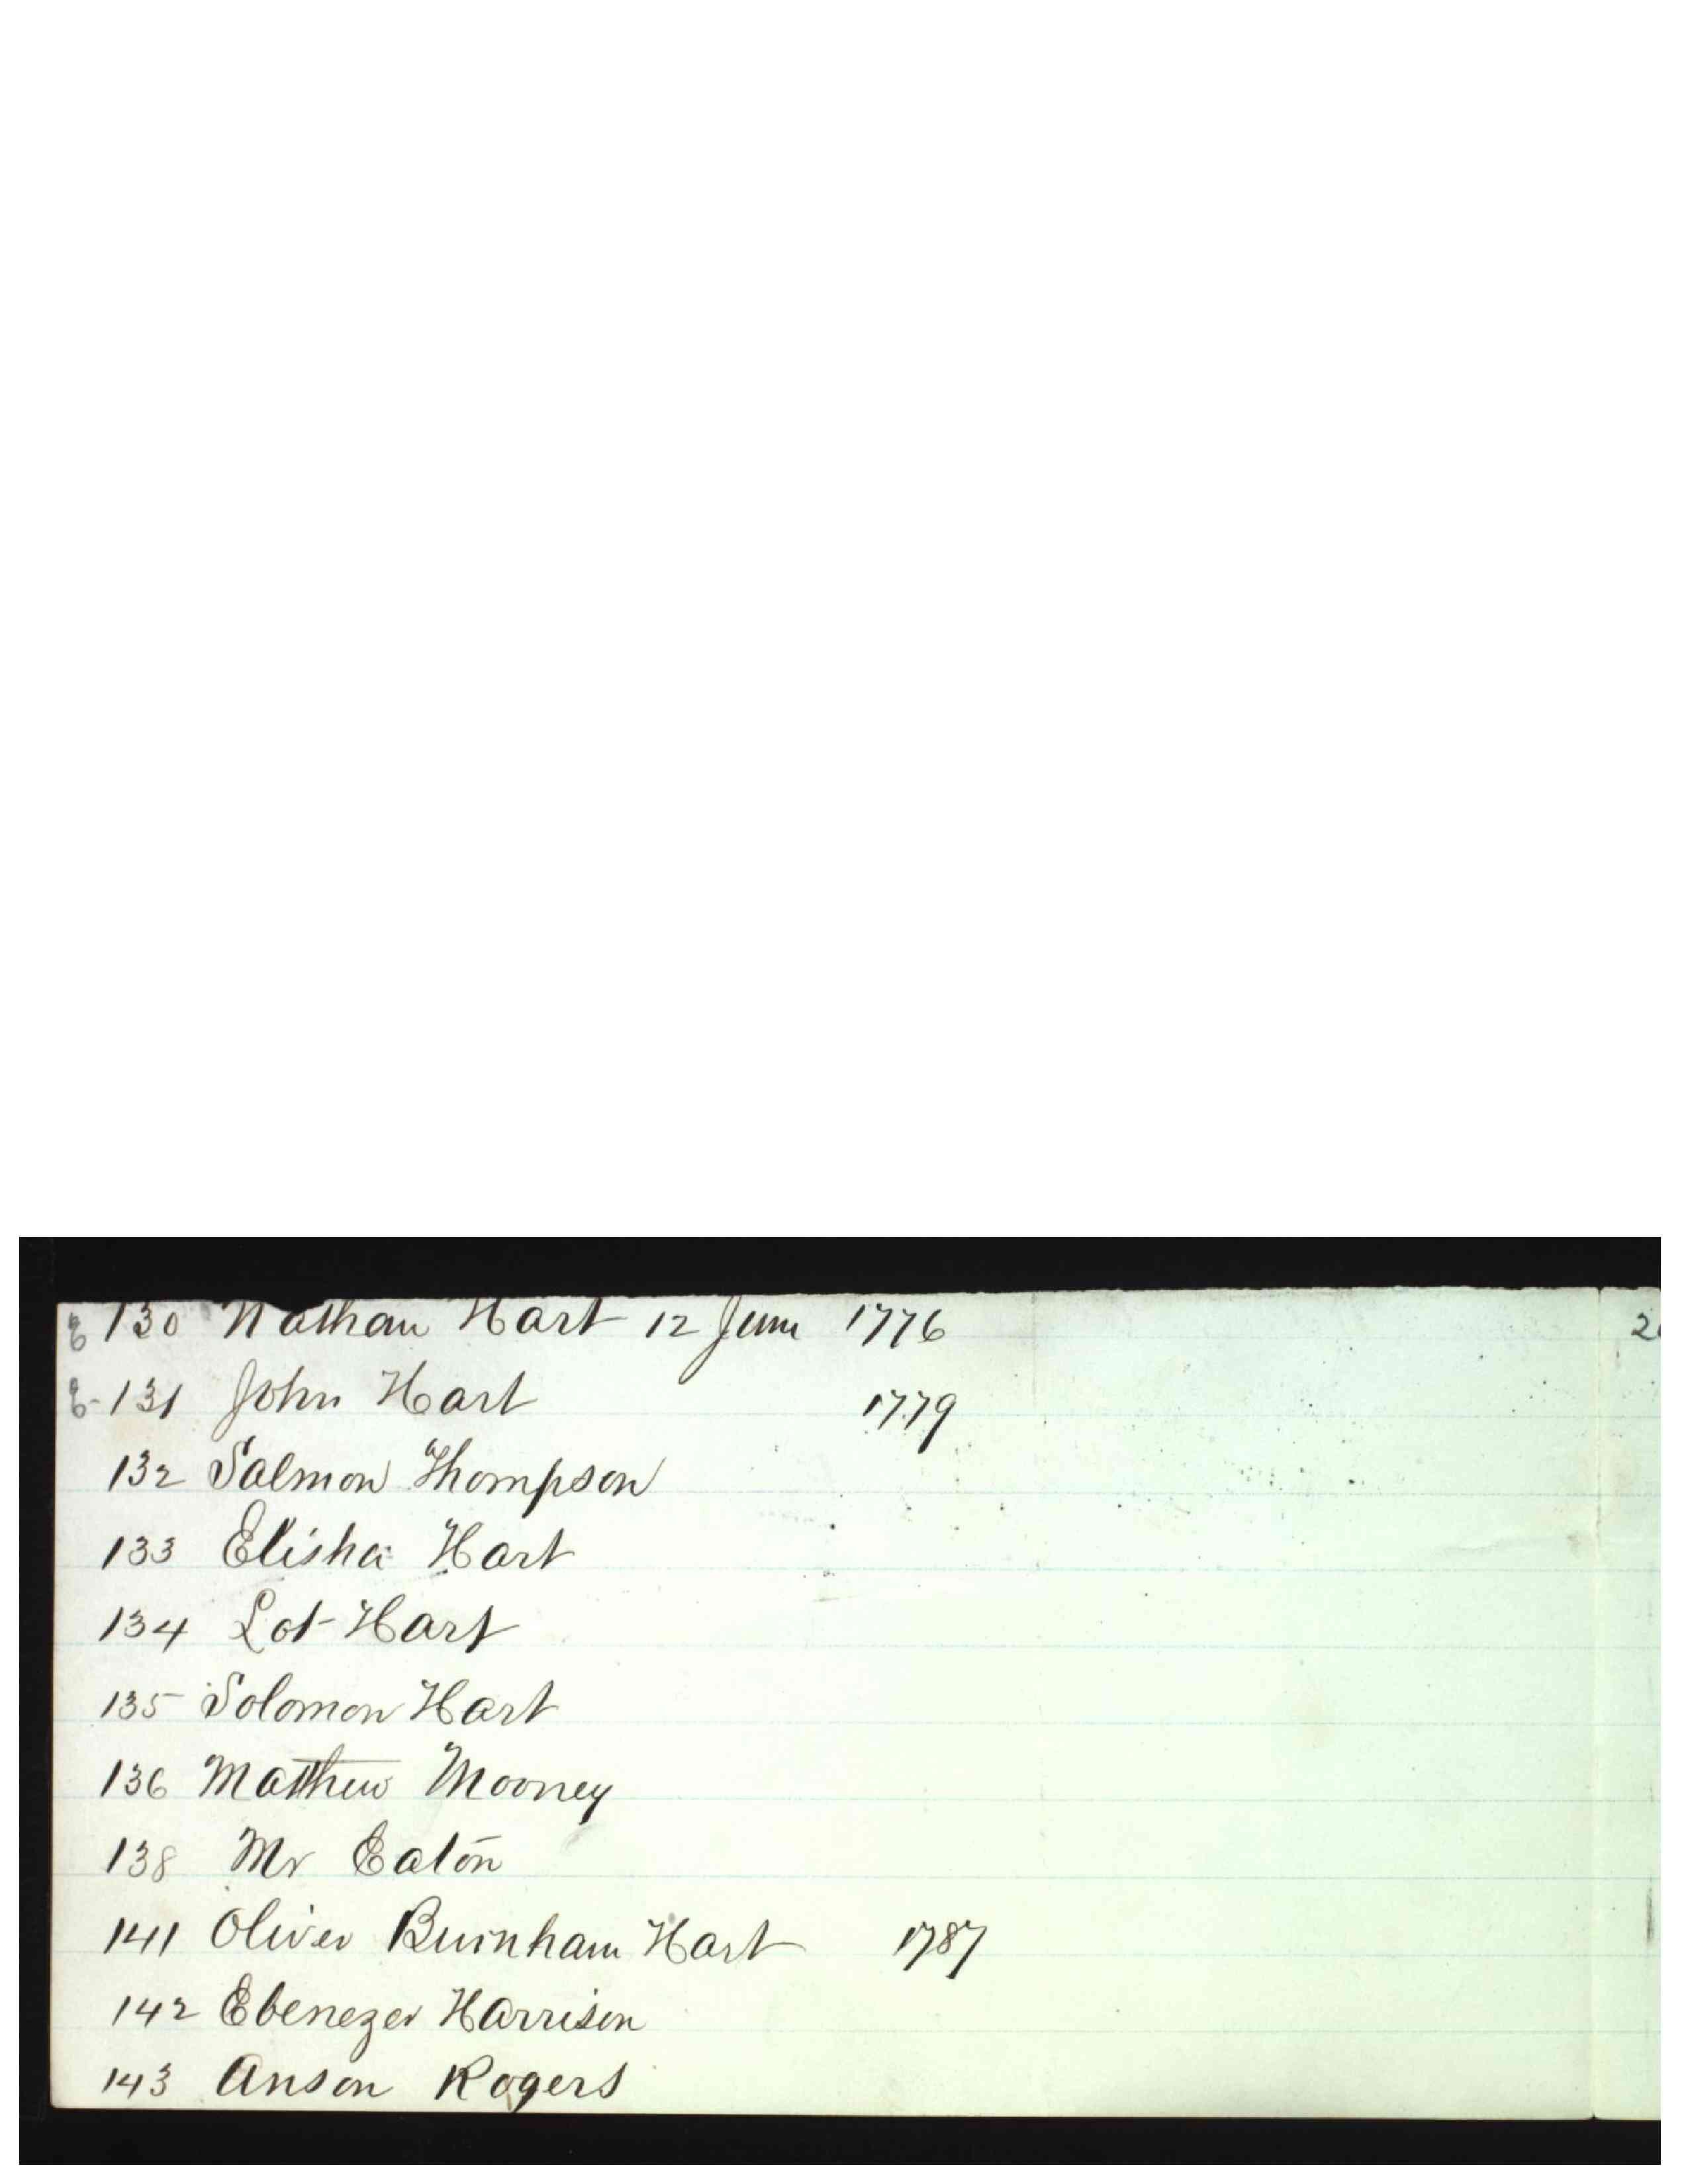 130 Nathan Hart 12 June 1776
131 John Hart 1779
132 Salmon Thompson
133 Elisha Hart
134 Lot Hart
135 Solomon Hart
136 Matthew Mooney
138 Mr Eaton
141 Oliver Burnham Hart 1787
142 Ebenezer Harrison
143 Anson Rogers